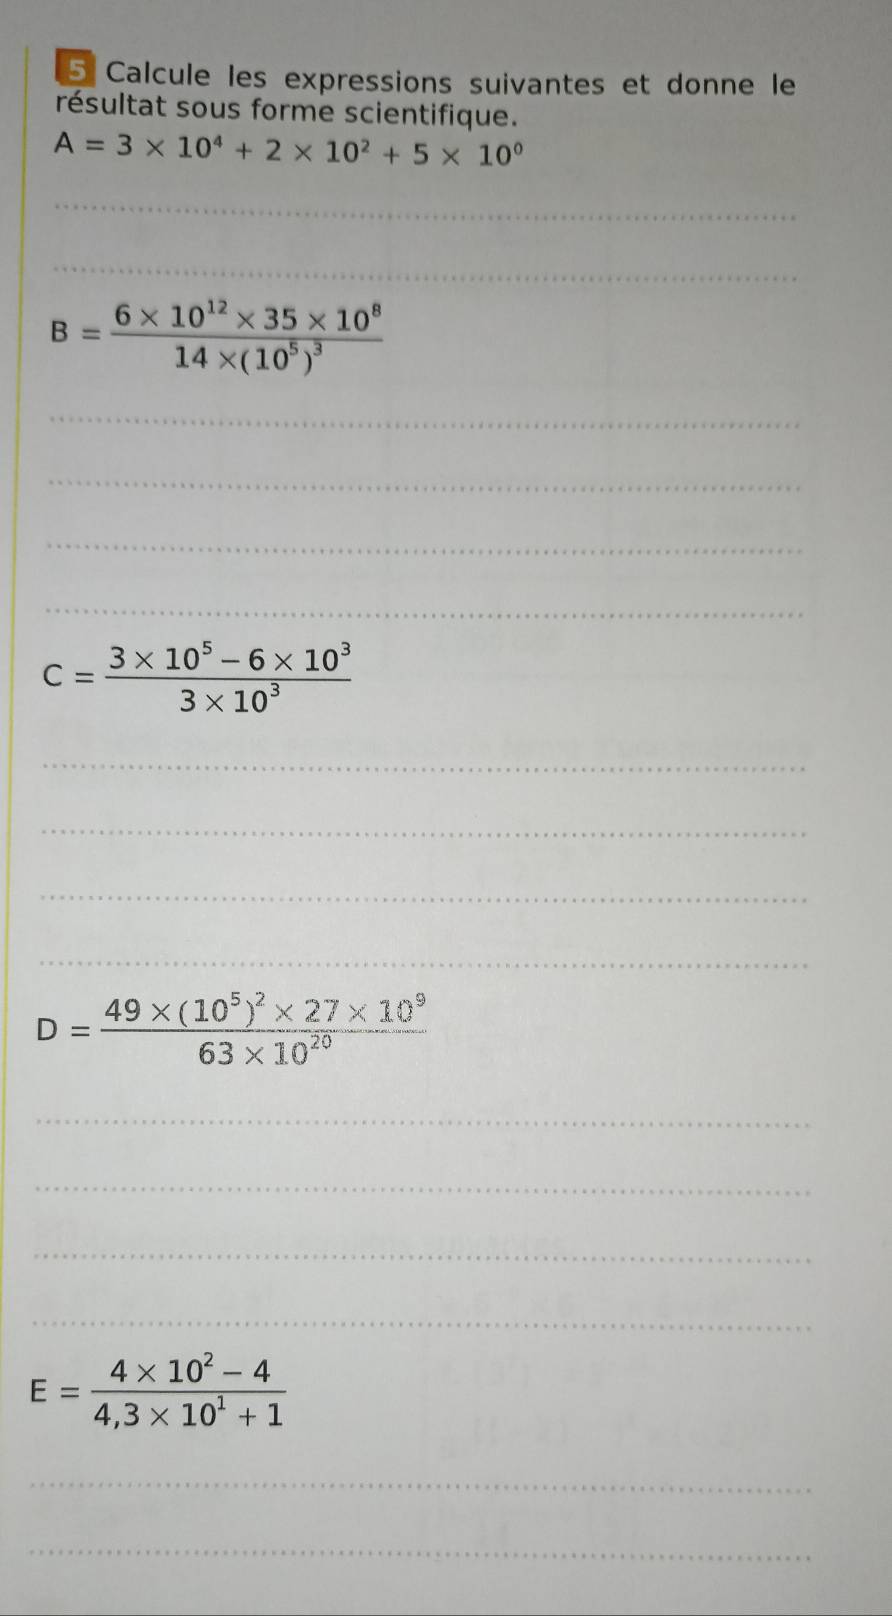 5 Calcule les expressions suivantes et donne le
résultat sous forme scientifique.
A = 3 × 10⁴ + 2 × 10² + 5 × 10⁰
B = \frac{6 × 10^{12} × 35 × 10^{8}}{14 × (10^{5})^{3}}
C = \frac{3 × 10^{5} − 6 × 10^{3}}{3 × 10^{3}}
D = \frac{49 × (10^{5})^{2} × 27 × 10^{9}}{63 × 10^{20}}
E = \frac{4 × 10^{2} − 4}{4,3 × 10^{1} + 1}